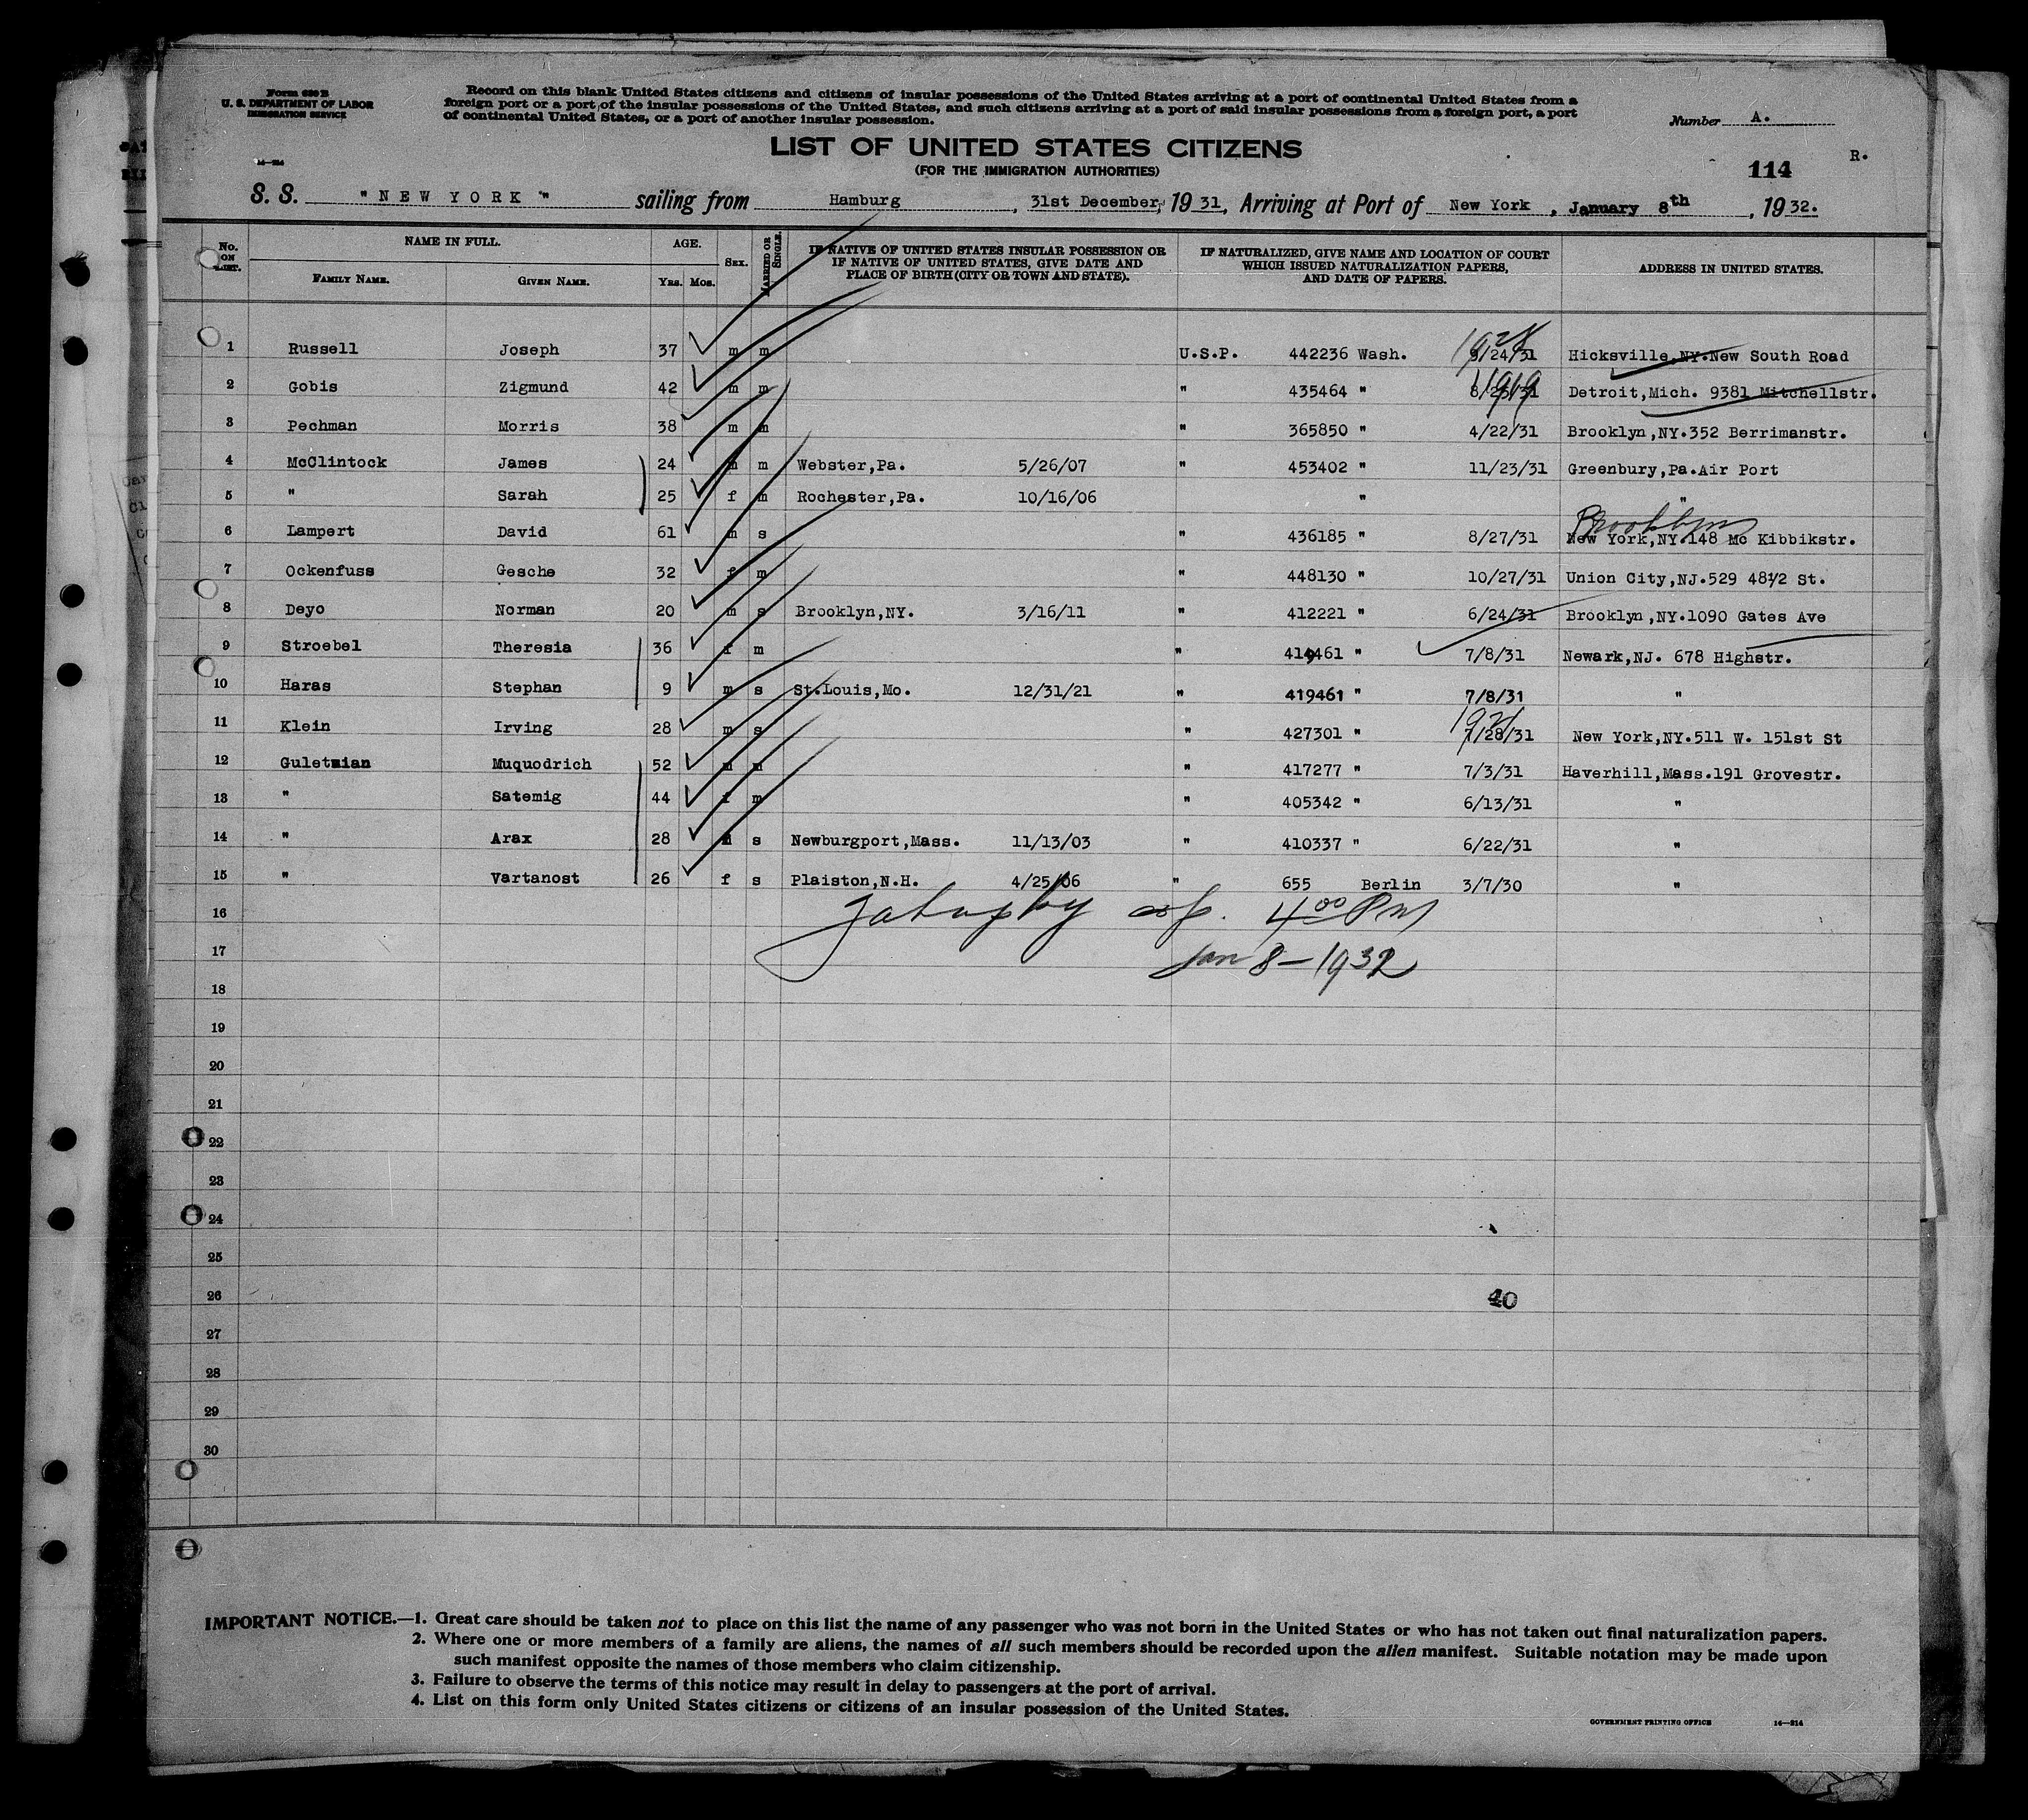 Form 630 B
U. S. DEPARTMENT OF LABOR
IMMIGRATION SERVICE
Record on this blank United States citizens and citizens of insular possessions of the United States arriving at a port of continental United States from a
foreign port or a port of the insular possessions of the United States, and such citizens arriving at a port of said insular possessions from a foreign port, a port
of continental United States, or a port of another insular possession.
Number A.
LIST OF UNITED STATES CITIZENS
(FOR THE IMMIGRATION AUTHORITIES)
14—214
114 R.
S. S. "NEW YORK" sailing from Hamburg, 31st December, 1931, Arriving at Port of New York, January 8th, 1932.
No. ON LIST. NAME IN FULL. AGE. SEX. MARRIED OR SINGLE. IF NATIVE OF UNITED STATES INSULAR POSSESSION OR IF NATIVE OF UNITED STATES, GIVE DATE AND PLACE OF BIRTH (CITY OR TOWN AND STATE). IF NATURALIZED, GIVE NAME AND LOCATION OF COURT WHICH ISSUED NATURALIZATION PAPERS, AND DATE OF PAPERS. ADDRESS IN UNITED STATES.
FAMILY NAME. GIVEN NAME. YRS. MOS.
1 Russell Joseph 37 m m U.S.P. 442236 Wash. 1928 9/24/31 Hicksville,NY.New South Road
2 Gobis Zigmund 42 m m " 435464 " 1919 8/25/31 Detroit,Mich. 9381 Mitchellstr.
3 Pechman Morris 38 m m " 365850 " 4/22/31 Brooklyn,NY.352 Berrimanstr.
4 McClintock James 24 m m Webster,Pa. 5/26/07 " 453402 " 11/23/31 Greenbury,Pa.Air Port
5 " Sarah 25 f m Rochester,Pa. 10/16/06 " "
Brooklyn
6 Lampert David 61 m s " 436185 " 8/27/31 New York,NY.148 Mc Kibbikstr.
7 Ockenfuss Gesche 32 f m " 448130 " 10/27/31 Union City,NJ.529 48½ St.
8 Deyo Norman 20 m s Brooklyn,NY. 3/16/11 " 412221 " 6/24/31 Brooklyn,NY.1090 Gates Ave
9 Stroebel Theresia 36 f m " 419461 " 7/8/31 Newark,NJ. 678 Highstr.
10 Haras Stephan 9 m s St.Louis,Mo. 12/31/21 " 419461 " 7/8/31 "
11 Klein Irving 28 m s " 427301 " 1921 7/28/31 New York,NY.511 W. 151st St
12 Guletmian Muquodrich 52 m m " 417277 " 7/3/31 Haverhill,Mass.191 Grovestr.
13 " Satemig 44 f m " 405342 " 6/13/31 "
14 " Arax 28 s Newburgport,Mass. 11/13/03 " 410337 " 6/22/31 "
15 " Vartanost 26 f s Plaiston,N.H. 4/25/06 " 655 Berlin 3/7/30 "
16 4 00 PM
17 Jan 8 - 1932
18
19
20
21
22
23
24
25
26 40
27
28
29
30
IMPORTANT NOTICE.—1. Great care should be taken not to place on this list the name of any passenger who was not born in the United States or who has not taken out final naturalization papers.
2. Where one or more members of a family are aliens, the names of all such members should be recorded upon the alien manifest. Suitable notation may be made upon
such manifest opposite the names of those members who claim citizenship.
3. Failure to observe the terms of this notice may result in delay to passengers at the port of arrival.
4. List on this form only United States citizens or citizens of an insular possession of the United States.
GOVERNMENT PRINTING OFFICE 14—214